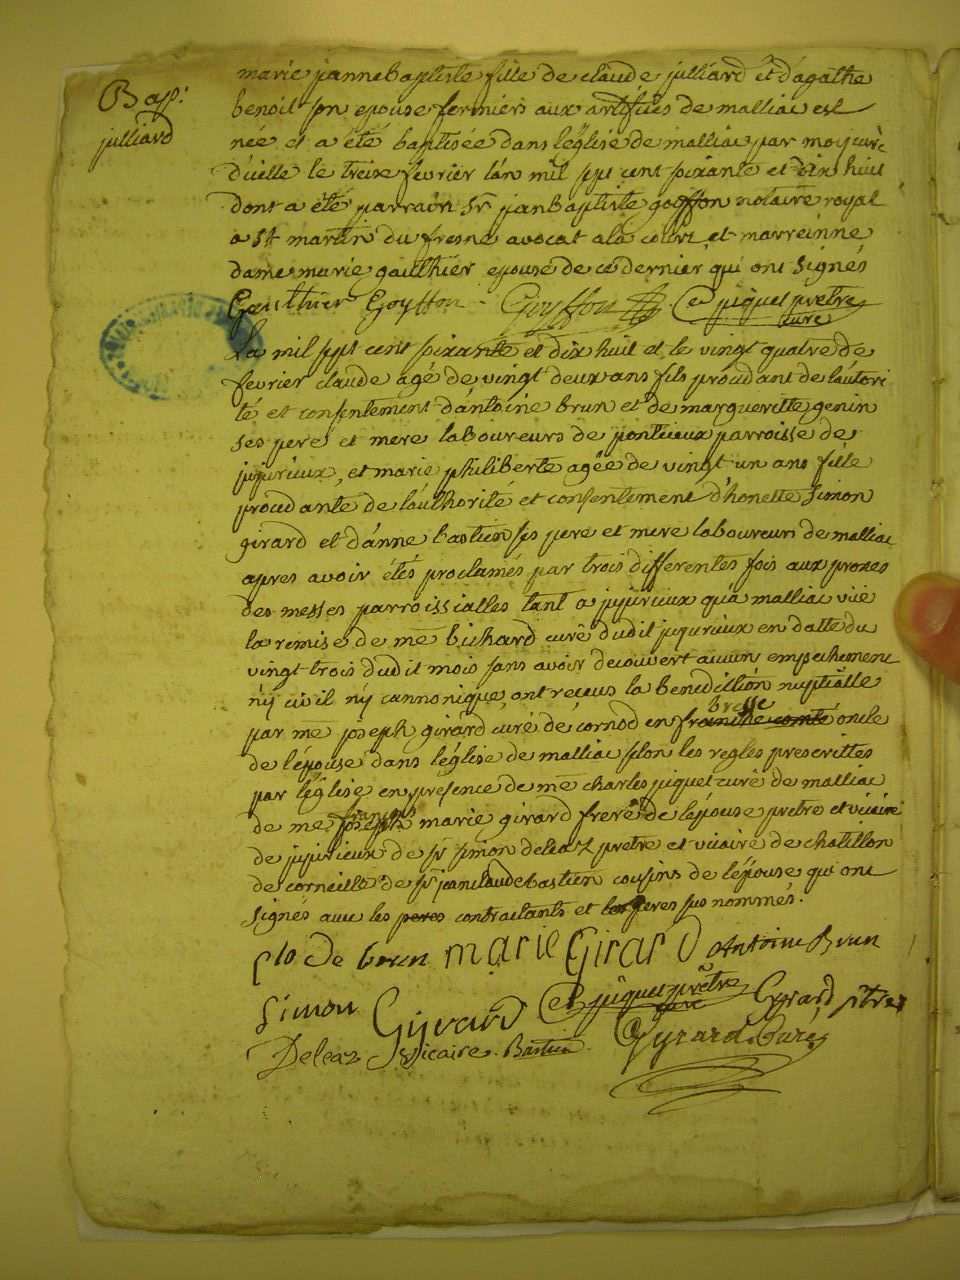 Bap.
julliard
marie jannebaptiste fille de claude julliard et d'agathe
benoit son epouse fermiers aux artifices de malliac est
née et a été baptisée dans l'église de malliac par moy curé
d'icelle le treize fevrier l'an mil sept cent soixante et dix huit
dont a été parrain sr janbaptiste goyffon notaire royal
a st martin du fresne avocat a la cour, et marreinne
dame marie gaulthier epouse de ce dernier qui ont signés
Gaulthier Goyffon Goyffon C piquet pretre
curé
La mil sept cent soixante et dix huit et le vingt quatre de
fevrier claude agé de vingt deux ans fils procudant de l'autori
té et consentement d'antoine brun et de margueritte genin
ses pere et mere laboureurs de pontieux parroisse de
jujurieux, et marie philiberte agée de vingt un ans fille
procudante de l'authorité et consentement d'honette simon
girard et d'anne bastien ses pere et mere laboureurs de malliac
apres avoir étés proclamés par trois differentes fois aux prones
des messes parroissialles tant a jujurieux qu'a malliac vüe
la remise de me bichard curé dudit jujurieux en datte du
vingt trois dudit mois sans avoir decouvert aucun empechement
nÿ civil nÿ cannonique, ont recus la benediction nuptialle
bresse
par me joseph girard curé de cornod en franche comté oncle
de l'épouse dans l'église de malliac selon les regles prescrittes
par l'église en presence de me charles piquet curé de malliac
françois
de me joseph marie girard frere de l'épouse pretre et vicaire
de jujurieux de sr simon deleaz pretre et vicaire de chatillon
de corneille de sr jean claude bastien cousins de l'épouse qui ont
signés avec les peres contractants et les peres sus nommés.
Clo de brun marie Girard Antoine Brun
simon Gyrard C piquet pretre curé Gyrard ptre
Deleaz vicaire. Bastien Gyrard. Curé